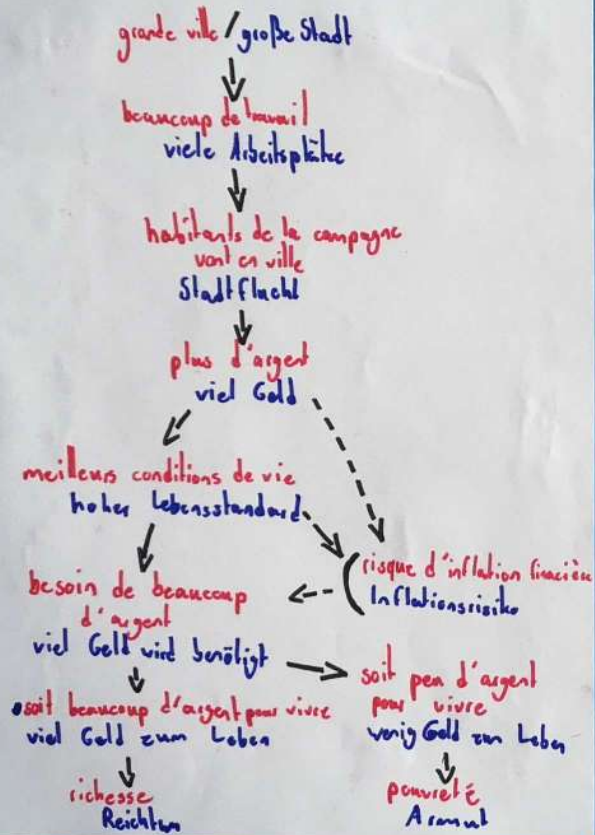 grande ville / große Stadt
beaucoup de travail
viele Arbeitsplätze
habitants de la campagne
vont en ville
Stadtflucht
plus d'argent
viel Geld
meilleurs conditions de vie
hoher Lebensstandard
risque d'inflation financière
Inflationsrisiko
besoin de beaucoup
d'argent
viel Geld wird benötigt
soit peu d'argent
pour vivre
wenig Geld zum Leben
soit beaucoup d'argent pour vivre
viel Geld zum Leben
richesse
Reichtum
pauvreté
Armut